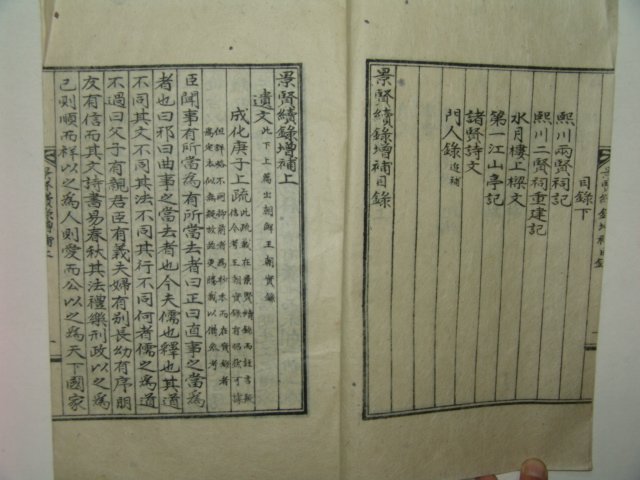 目錄下
熙川兩賢祠記
熙川二賢祠重建記
水月樓上樑文
第一江山亭記
諸賢詩文
門人錄 追補
景賢續錄增補目錄
景賢續錄增補上
遺文 此下上篇出朝鮮王朝實錄
成化庚子上疏
臣聞事有所當爲有所當去者曰正曰直事之當爲
者也曰邪曰曲事之當去者也今夫儒也釋也其道
不同其文不同其法不同其行不同何者儒之爲道
不過曰父子有親君臣有義夫婦有別長幼有序朋
友有信而其文詩書易春秋其法禮樂刑政以之爲
己則順而祥以之爲人則愛而公以之爲天下國家